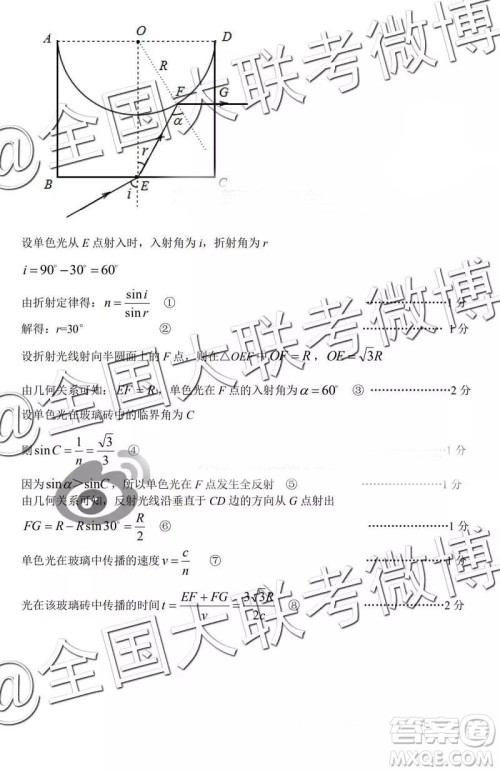 A O D
R
F G
α
r
B E C
i
设单色光从 E 点射入时，入射角为 i，折射角为 r
i=90°−30°=60°
由折射定律得：n=sin i/sin r ① 1 分
解得：r=30° ② 1 分
设折射光线射向半圆面上的 F 点，则在△OEF 中OF=R，OE=√3R
由几何关系可知：EF=R，单色光在 F 点的入射角为α=60° ③ 2 分
设单色光在玻璃砖中的临界角为 C
则 sinC=1/n=√3/3 ④ 1 分
因为 sinα>sinC，所以单色光在 F 点发生全反射 ⑤ 1 分
由几何关系可知，反射光线沿垂直于 CD 边的方向从 G 点射出
FG=R−Rsin30°=R/2 ⑥ 1 分
单色光在玻璃中传播的速度 v=c/n ⑦ 1 分
光在该玻璃砖中传播的时间 t=(EF+FG)/v=3√3R/2c ⑧ 2 分
@全国大联考微博
@全国大联考微博
@全国大联考微博
答案圈
MXQE.COM